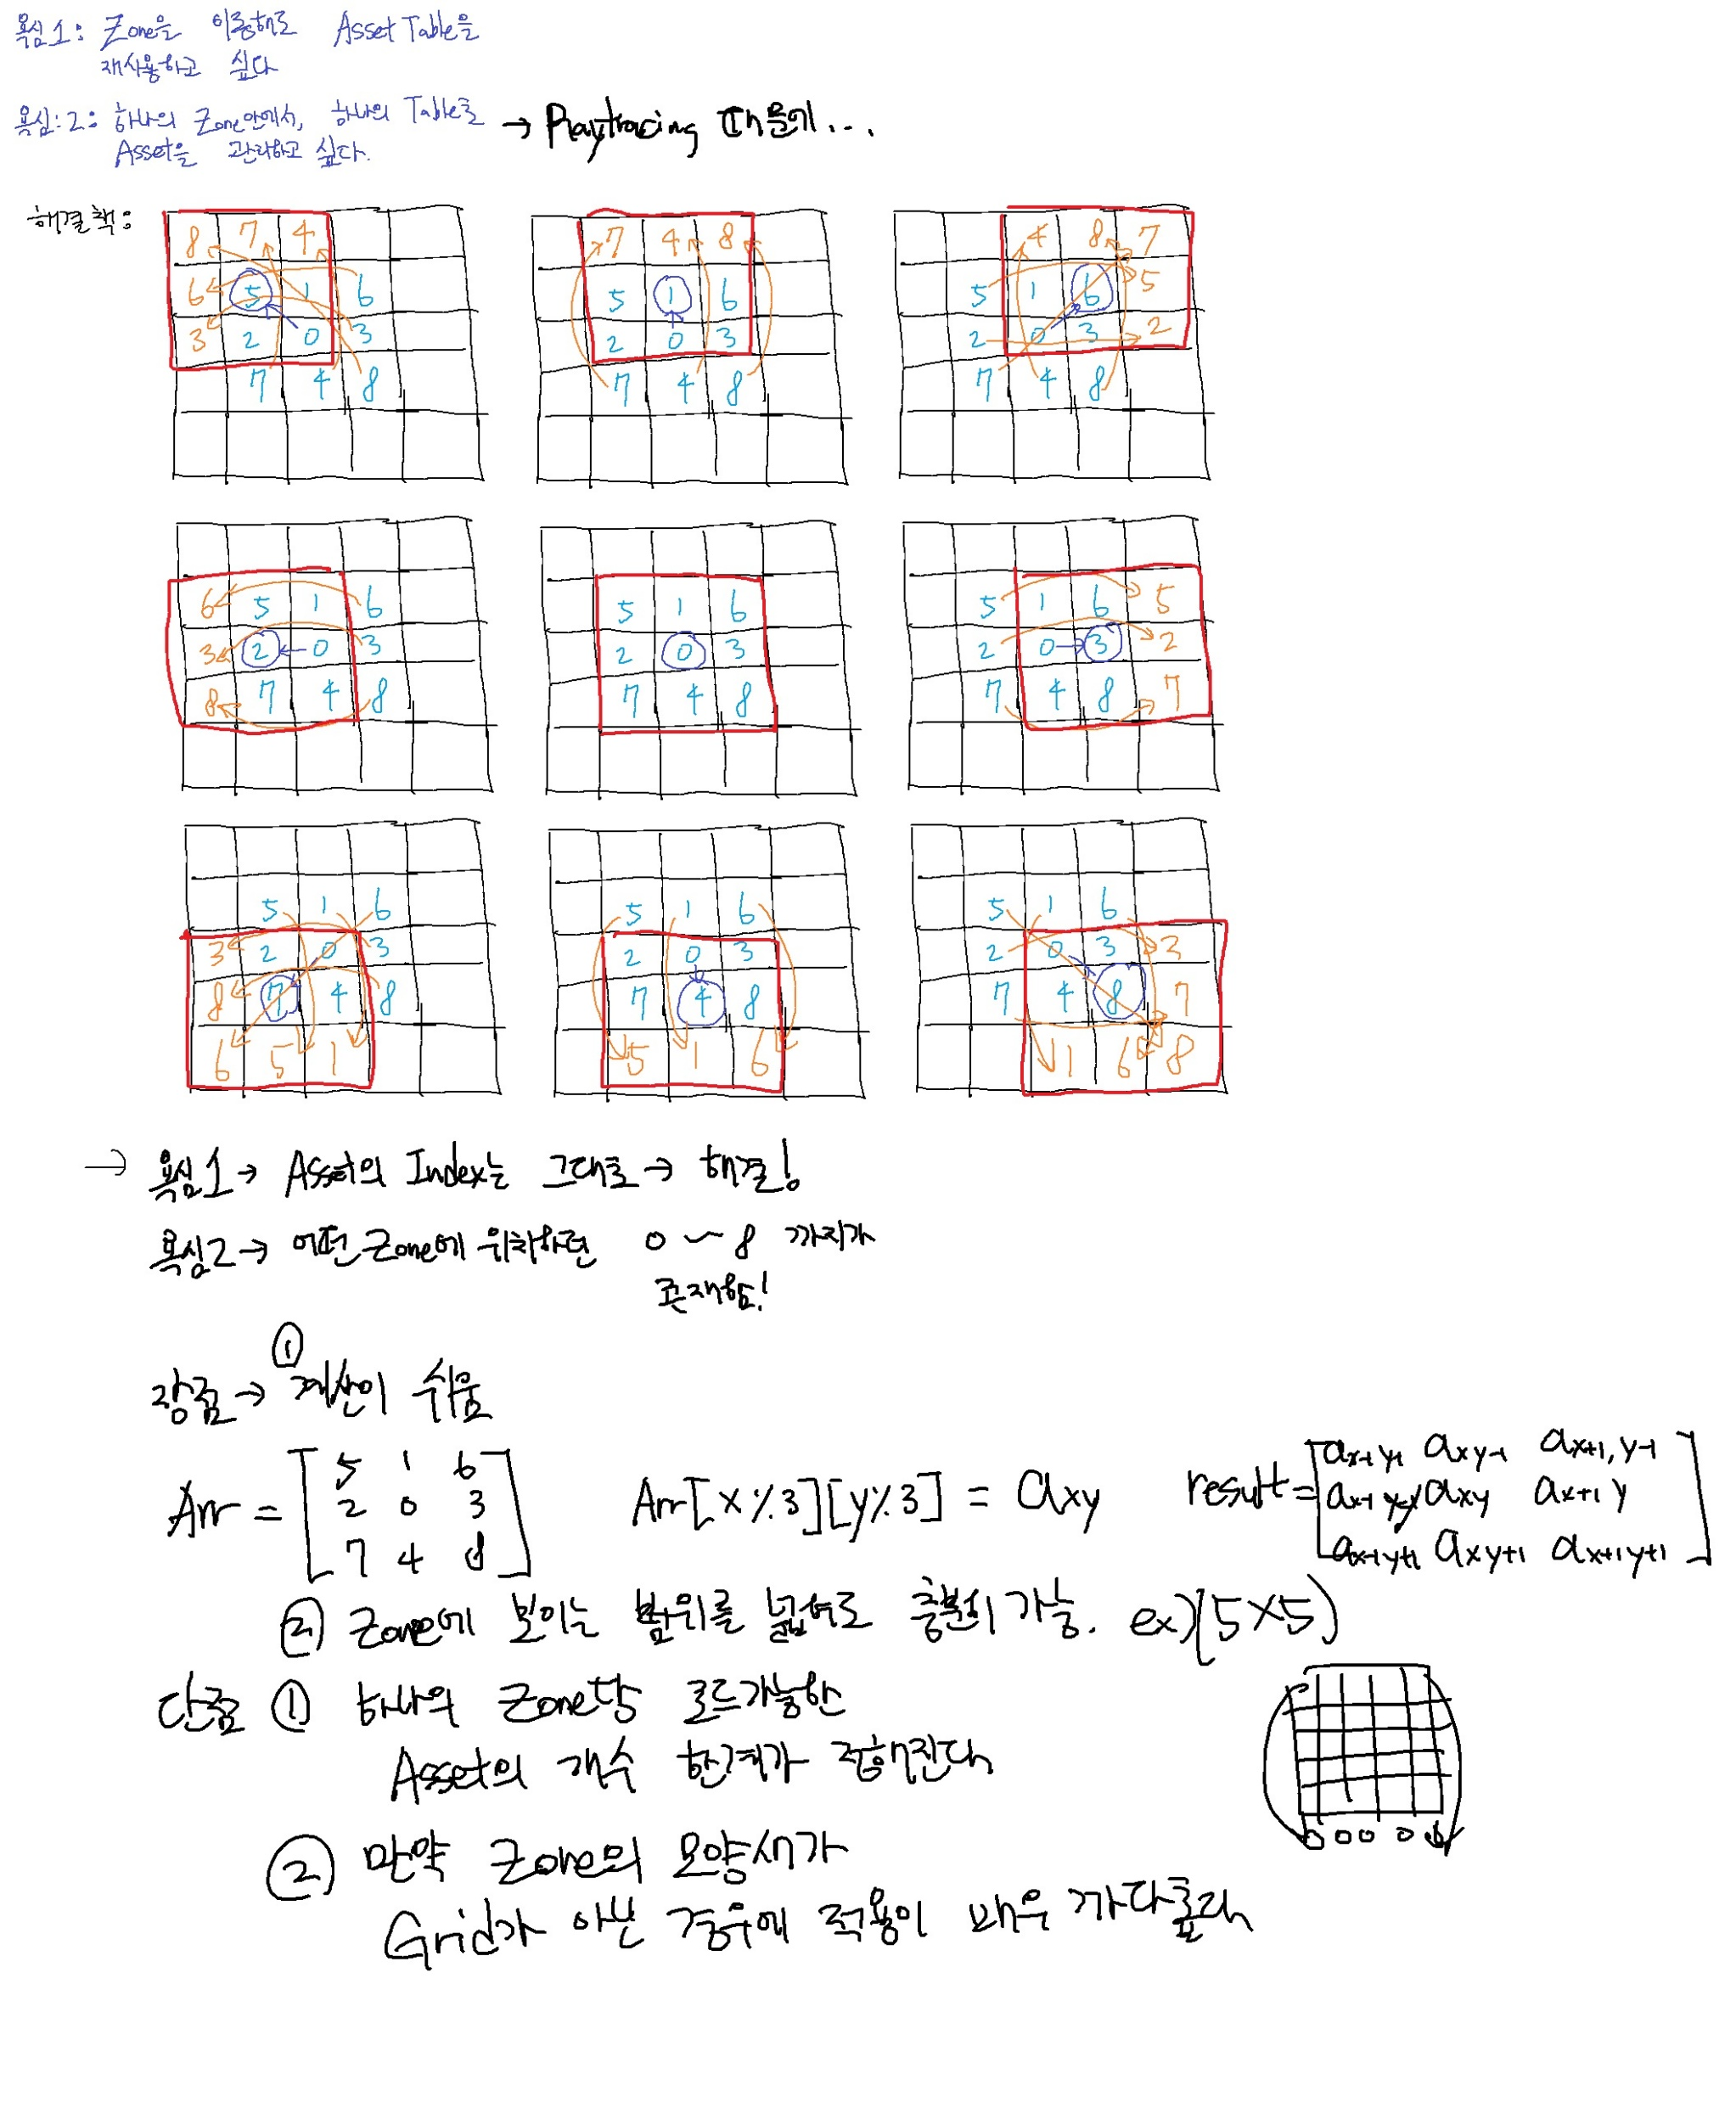 욕심1: Zone을 이동해도 Asset Table을
재사용하고 싶다
욕심:2: 하나의 Zone안에서, 하나의 Table로
Asset을 관리하고 싶다.
→ Raytracing 때문에...
해결책:
8 7 4
6 5 1 6
3 2 0 3
7 4 8
7 4 8
5 1 6
2 0 3
7 4 8
4 8 7
5 1 6 5
2 0 3 2
7 4 8
6 5 1 6
3 2 0 3
8 7 4 8
5 1 6
2 0 3
7 4 8
5 1 6 5
2 0 3 2
7 4 8 7
5 1 6
3 2 0 3
8 7 4 8
6 5 1
5 1 6
2 0 3
7 4 8
5 1 6
5 1 6
2 0 3 2
7 4 8 7
1 6 8
→ 욕심1→ Asset의 Index는 그대로 → 해결!
욕심2→ 어떤 Zone에 위치하던 0 ~ 8 까지가
존재함!
장점→ ① 계산이 쉬움
Arr = [5 1 6
2 0 3
7 4 8]
Arr[x%3][y%3] = axy
result = [ax-1y-1 axy-1 ax+1,y-1
ax-1y axy ax+1y
ax-1y+1 axy+1 ax+1y+1]
② Zone에 보이는 범위를 넓혀도 충분히 가능. ex)(5X5)
단점 ① 하나의 Zone당 로드가능한
Asset의 개수 한계가 정해진다
② 만약 Zone의 모양새가
Grid가 아닌 경우에 적용이 매우 까다롭다